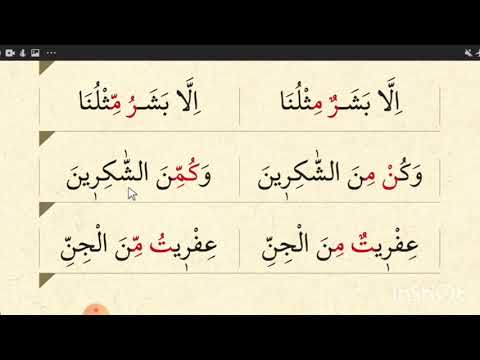 اِلَّا بَشَـرٌ مِثْلُنَا اِلَّا بَشَـرُ مِّثْلُنَا
وَكُنْ مِنَ الشّٰكِرٖينَ وَكُمِّنَ الشّٰكِرٖينَ
عِفْرٖيتٌ مِنَ الْجِنِّ عِفْرٖيتُ مِّنَ الْجِنِّ
InShOt